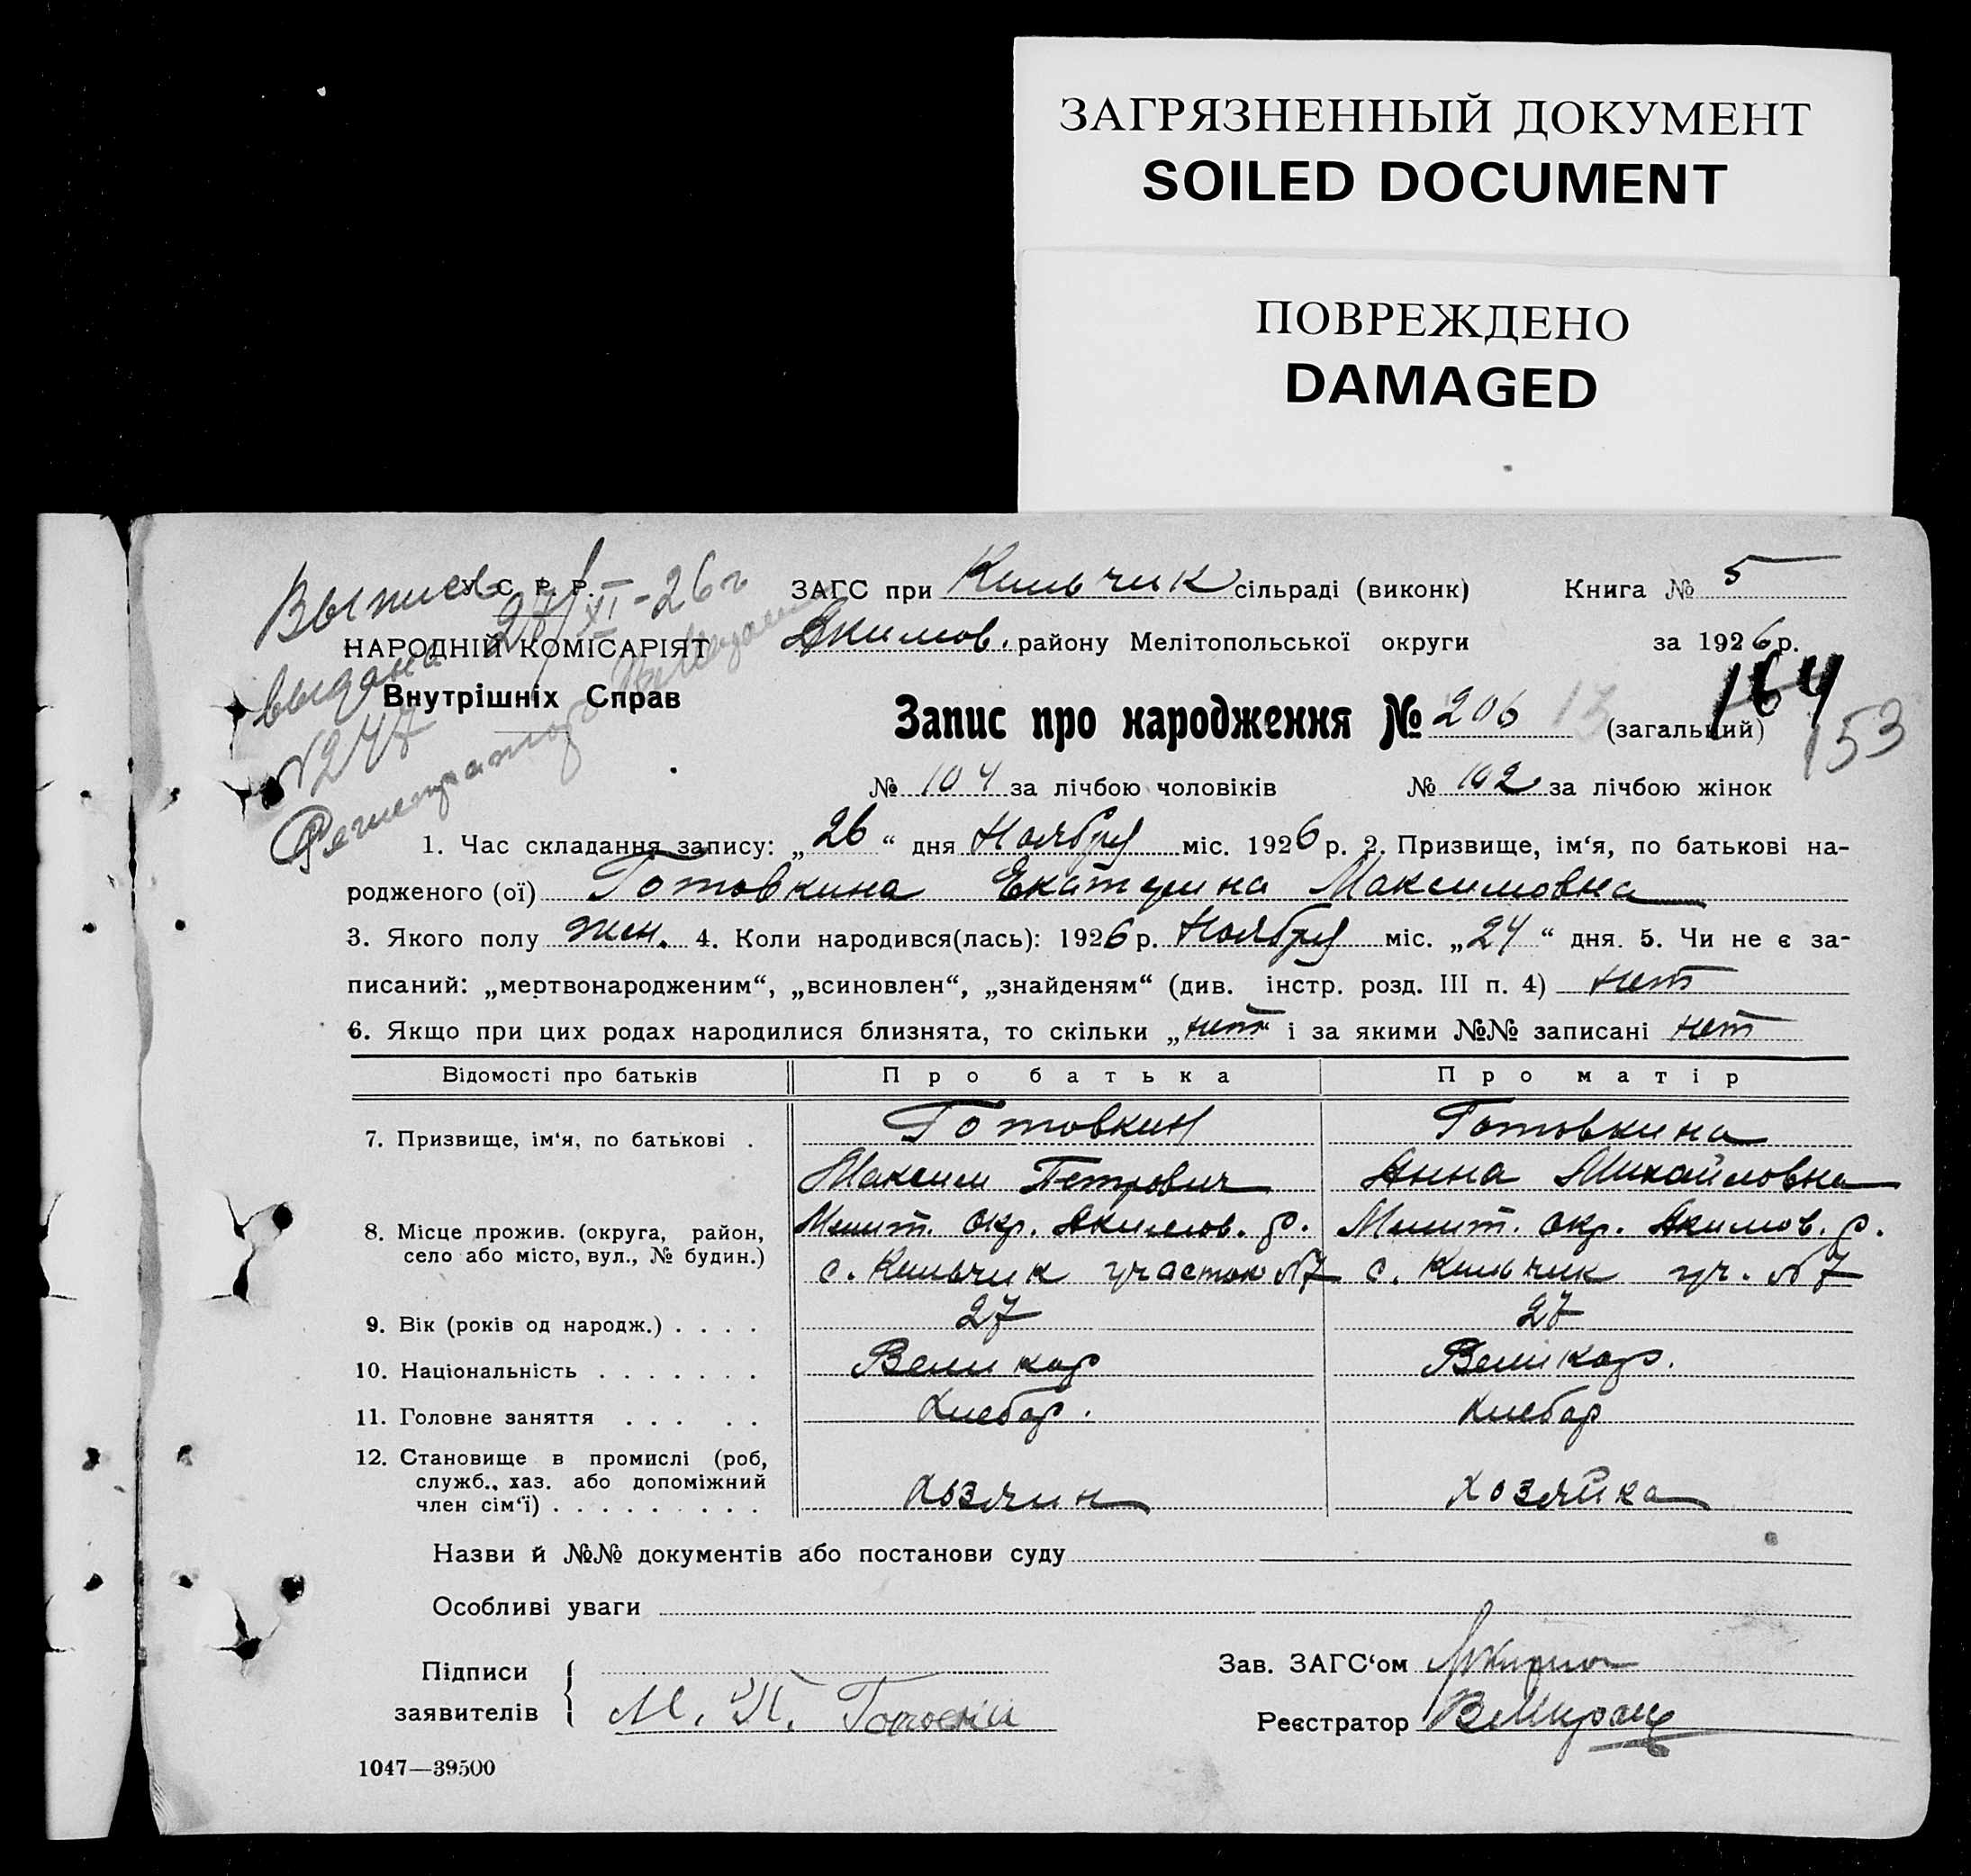 ЗАГРЯЗНЕННЫЙ ДОКУМЕНТ
SOILED DOCUMENT
ПОВРЕЖДЕНО
DAMAGED
У. С. Р. Р.
НАРОДНІЙ КОМІСАРІЯТ
Внутрішніх Справ
Выпись
выдана
26/XI-26 г
№ 247
Регистратор
ЗАГС при Кильчик сільраді (виконк) Книга № 5
Якимов. району Мелітопольської округи за 1926 р.
164
153
Запис про народження № 206 13 (загальний)
№ 104 за лічбою чоловіків № 102 за лічбою жінок
1. Час складання запису: „26“ дня Ноября міс. 1926 р. 2. Призвище, ім‘я, по батькові на-
родженого (ої) Готовкина Екатерина Максимовна
3. Якого полу жен. 4. Коли народився(лась): 1926 р. Ноября міс. „24“ дня. 5. Чи не є за-
писаний: „мертвонародженим“, „всиновлен“, „знайденям“ (див. інстр. розд. III п. 4) нет
6. Якщо при цих родах народилися близнята, то скільки „нет“ і за якими №№ записані нет
Відомості про батьків Про батька Про матір
7. Призвище, ім‘я, по батькові . Готовкин Готовкина
Максим Петрович Анна Михайловна
8. Місце прожив. (округа, район, Мелит. окр. Якимов. р. Мелит. окр. Якимов. р.
село або місто, вул., № будин.) с. Кильчик участок №7 с. Кильчик уч. №7
9. Вік (років од народж.) . . . . 27 27
10. Національність . . . . . . . Великор Великор.
11. Головне заняття . . . . . Хлебор. Хлебор
12. Становище в промислі (роб,
служб., хаз. або допоміжний
член сім‘ї) . . . . . . . . . Хозяин Хозяйка
Назви й №№ документів або постанови суду
Особливі уваги
Підписи
заявителів М. П. Готовкин
Зав. ЗАГС‘ом
Реєстратор
1047—39500